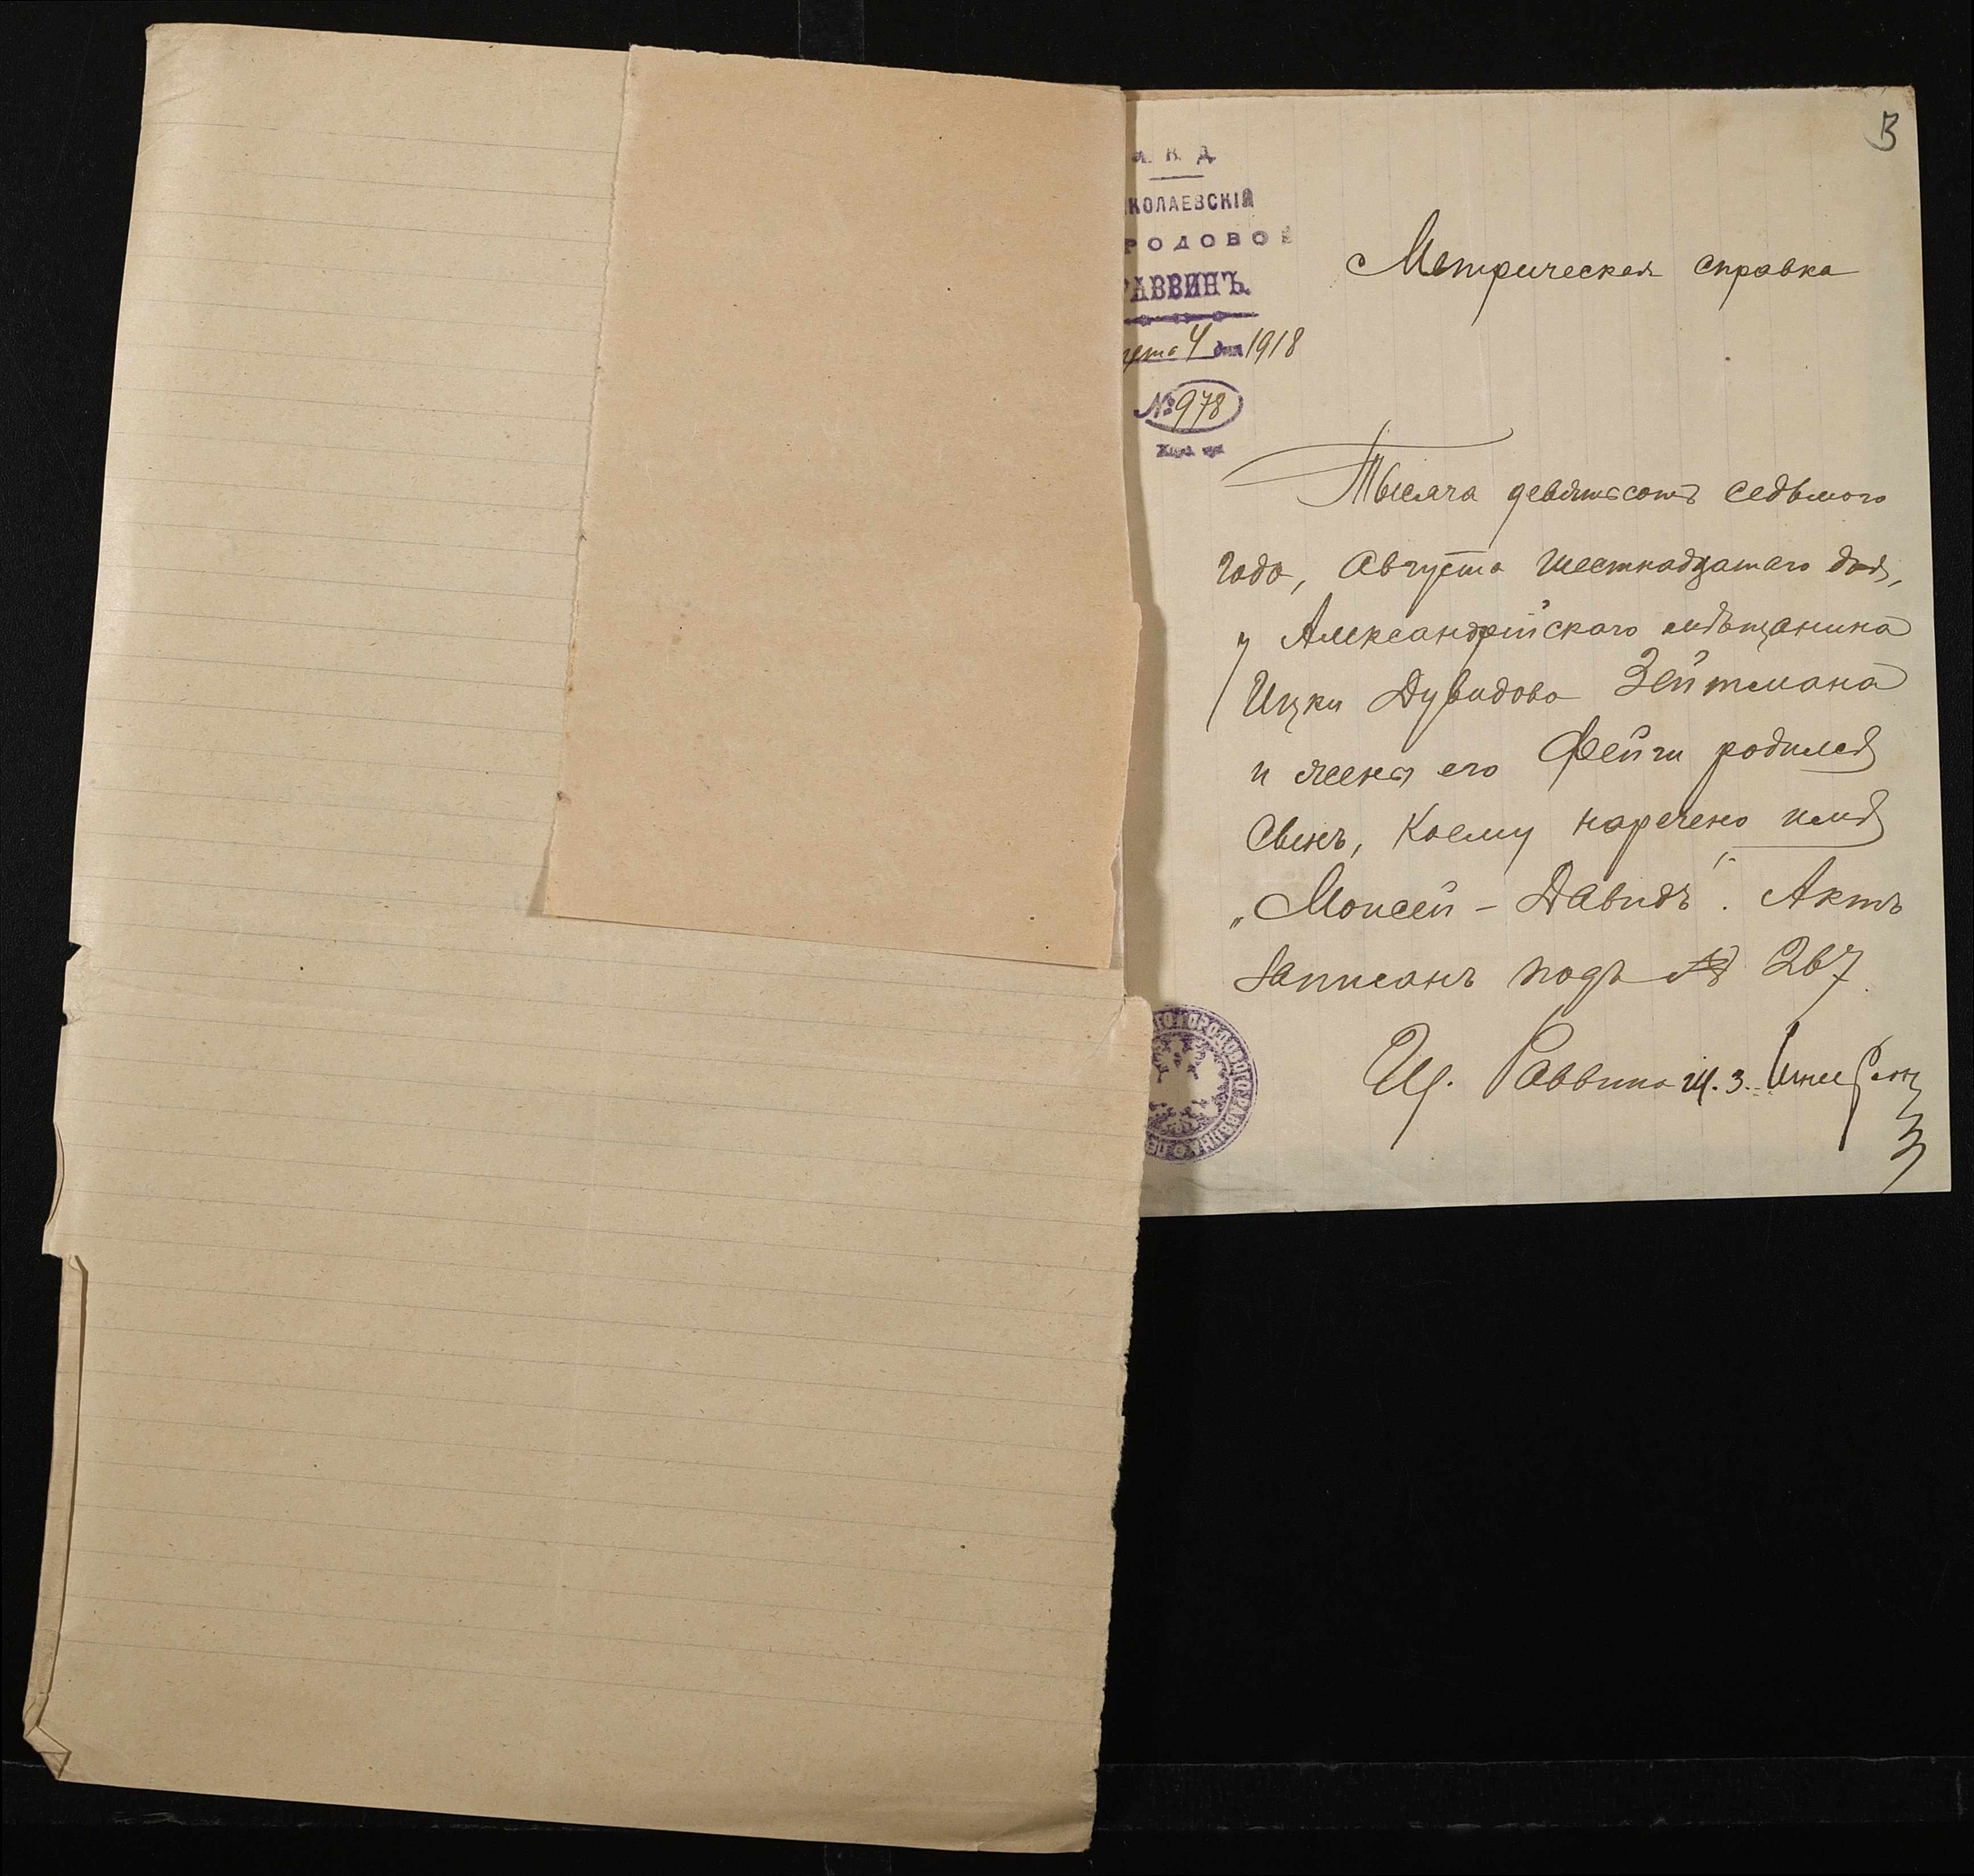 3
В. Д.
КОЛАЕВСКІЙ
РОДОВОЙ
РАВВИНЪ.
густа 4 дня 1918
№ 978
Метрическая справка
Тысяча девятьсотъ седьмого
года, Августа шестнадцатаго дня,
у Александрійскаго мѣщанина
Ицки Дувидова Зейтмана
и жены его Фейги родился
сынъ, коему наречено имя
„Моисей - Давидъ". Актъ
записанъ подъ № 267.
ГОРОДОВОГО РАВВИНА
Раввина